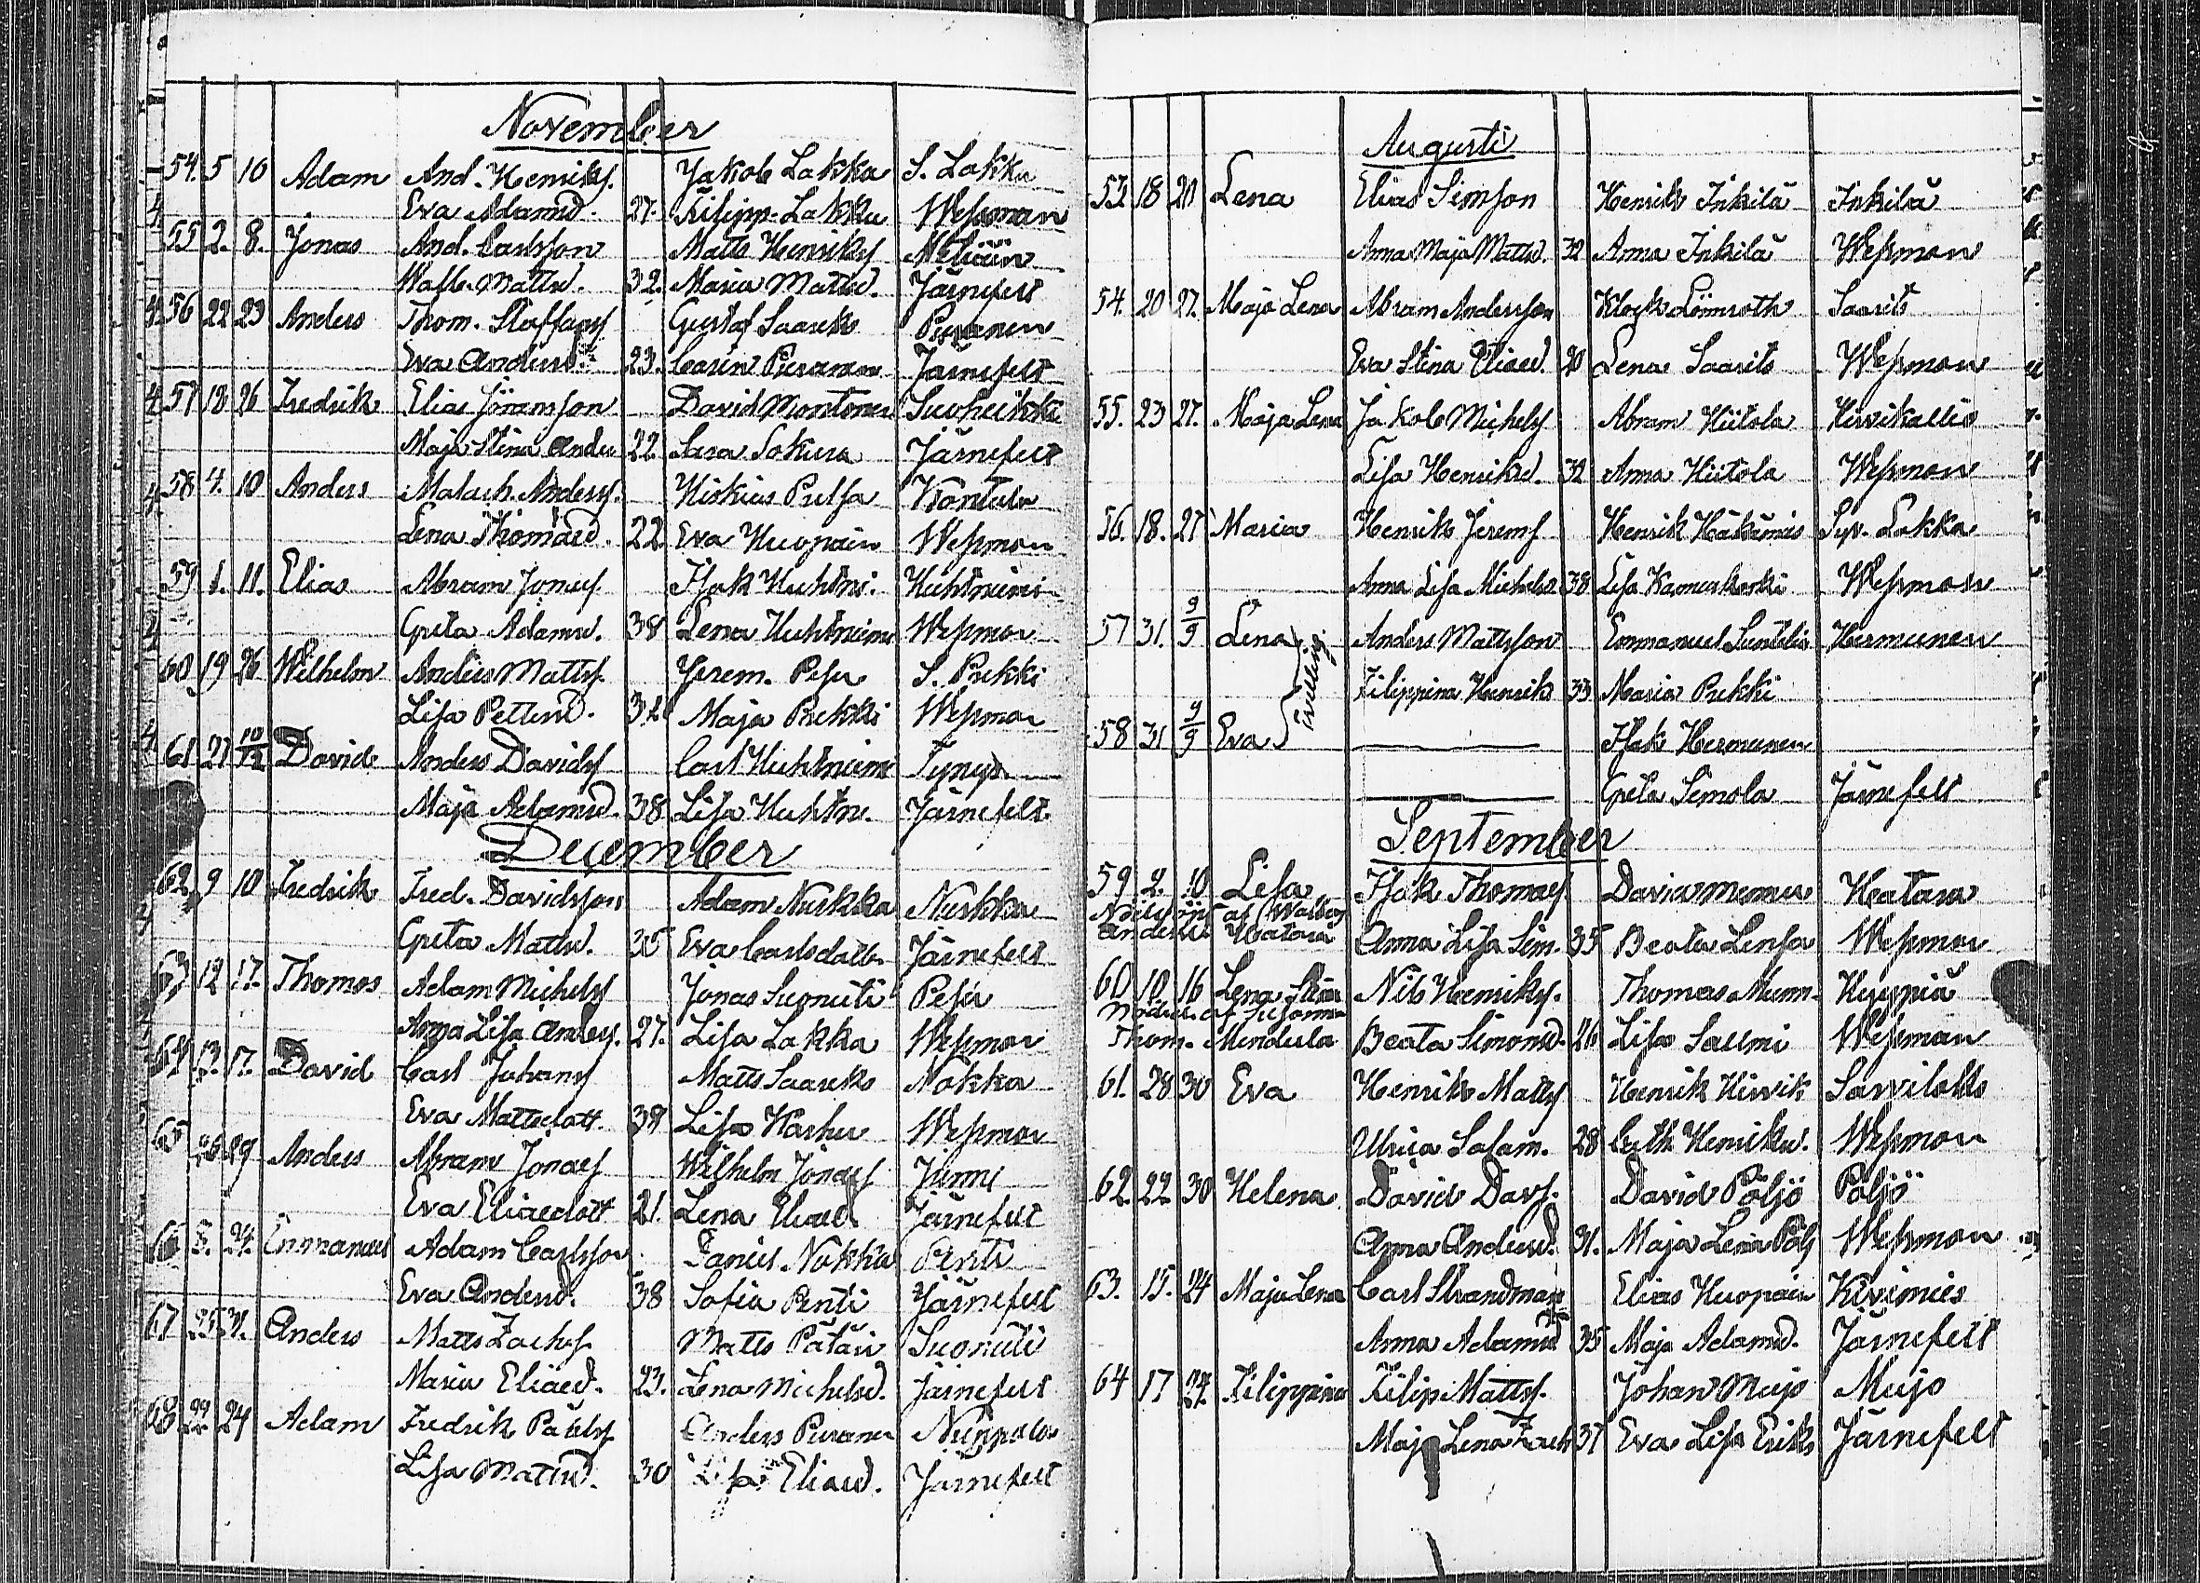 November
54. 5 10 Adam And. Henriks. Jakob Lakka S. Lakka
Eva Adamsd. 27. Filipp. Lakka Wessman
55 2. 8. Jonas And. Carlsson Matts Henriks
Walb. Mattsd. 32. Maria Mattsd. Järnefelt
56 22 23 Anders Thom. Staffans Gustaf Saareks Puranen
Eva Andersd. 23. Carin Puranen Järnefelt
57 18 26 Fredrik Elias Göransson David Montonen
Maja Stina Anders 22 Sara Sokura Järnefelt
58 4. 10 Anders Malach. Anderss. Hiskias Pulsa Kontula
Lena Thomasd. 22 Eva Huopain Wessman
59 1. 11. Elias Abram Jonass. Isak Huhtni. Huhtniemi
Greta Adamsd. 38 Lena Huhtniemi Wessman
60 19 26 Wilhelm Anders Mattss. Jerem. Pesu S. Pukki
Lisa Pettersd. 32 Maja Pukki Wessman
61 27 10/12 David Anders Davids Carl Huhtniemi
Maja Adamsd. 38 Lisa Huhtn. Järnefelt
December
62 9 10 Fredrik Fred. Davidsson Adam Nuskka Nuskka
Greta Mattsd. 35 Eva Carlsdott. Järnefelt
63 12 17. Thomas Adam Michels Jonas Suoniiti Pesu
Anna Lisa Anders. 27. Lisa Lakka Wessman
64 13. 17. David Carl Johans Matts Saareks Nokka
Eva Mattsdott. 39 Lisa Wessman
65 26 29 Anders Abram Jonass Wilhelm Jonass
Eva Eliaedott 21. Lena Eliaed. Järnefelt
66 24. Emmanuel Adam Carlsson Nokka Penti
Eva Andersd. 38 Sofia Penti Järnefelt
67 25 31. Anders Matts Zachs. Matts Pätäri Suoniiti
Maria Eliaed. 23. Lena Michelsd. Järnefelt
68 22 24 Adam Fredrik Påhls Anders Puranen
Lisa Mattsd. 30 Lisa Eliaed. Järnefelt
Augusti
53 18 20 Lena Elias Simsson Henrik Inkilä Inkilä
Anna Maja Mattsd. 32 Anna Inkilä Wessman
54. 20 27. Maja Lena Abram Andersson Klock Lönnroth Saarits
Eva Stina Eliaed. 20 Lena Saarits Wessman
55. 23 27. Maja Lena Jakob Michels Abram Hiitola Hirvikallio
Lisa Henriksd. 32 Anna Hiitola Wessman
56. 18. 27 Maria Henrik Jerems Henrik Hakamies Syv. Lakka
Anna Lisa Michelsd. 38 Lisa Wessman
57 31. 9/9 Lena Anders Mattsson Emmanuel Suntela Hermunen
Tvilling.
Filippina Henriks 33 Maria Pukki
58 31 9/9 Eva Isak Hermunen
Greta Simola Järnefelt
September
59 2. 10 Lisa Isak Thomass David Hatara
Nöddöpt af Walborg
Anders Hatara Anna Lisa Sim. 35 Beata Wessman
60 10. 16 Lena Stina Nils Henriks. Thomas Munn. Kuppiä
Nöd. af
Thom. Mendula Beata Simonsd. 26 Lisa Salmi Wessman
61. 28 30 Eva Henrik Matts Henrik Hirvik Savilahts
Ulrica Salam. 28 Cath. Henriksd. Wessman
62 22 30 Helena David Davs. David Pöljö Pöljö
Anna Andersd. 31. Maja Lena Pölj Wessman
63. 15. 24 Maja Lena Carl Strandman Elias Huopain Kivimies
Anna Adamsd 35 Maja Adamsd. Järnefelt
64 17 24. Filippina Filip Mattss. Johan Mujo Mujo
Maja Lena Zach 37 Eva Lisa Eriks Järnefelt